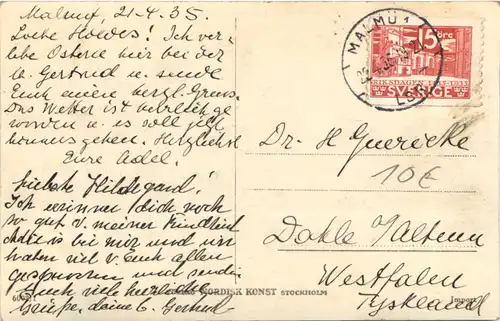 Malmö, 21-4.35.
Liebe Hoedes! Ich ver-
lebe Ostern hier bei der
lb. Gertrud u. sende
Euch einen herzl. Gruss.
Das Wetter ist herrlich ge
worden u. es soll jetzt
gehen. Herzlichst
Eure Adel.
Liebste Hildegard!
Ich erinner dich noch
so gut v. meiner Kindheit
ist bei mir und wir
haben viel v. Euch allen
gesprochen und senden
Euch viele herzliche
Grüsse, deine lb. Gertrud
MALMÖ 1
15 öre
RIKSDAGEN 1435-1935
SVERIGE
LBR
Dr. H Guericke
10€
Dahle i/Altena
Westfalen
Tyskland
NORDISK KONST STOCKHOLM
Import